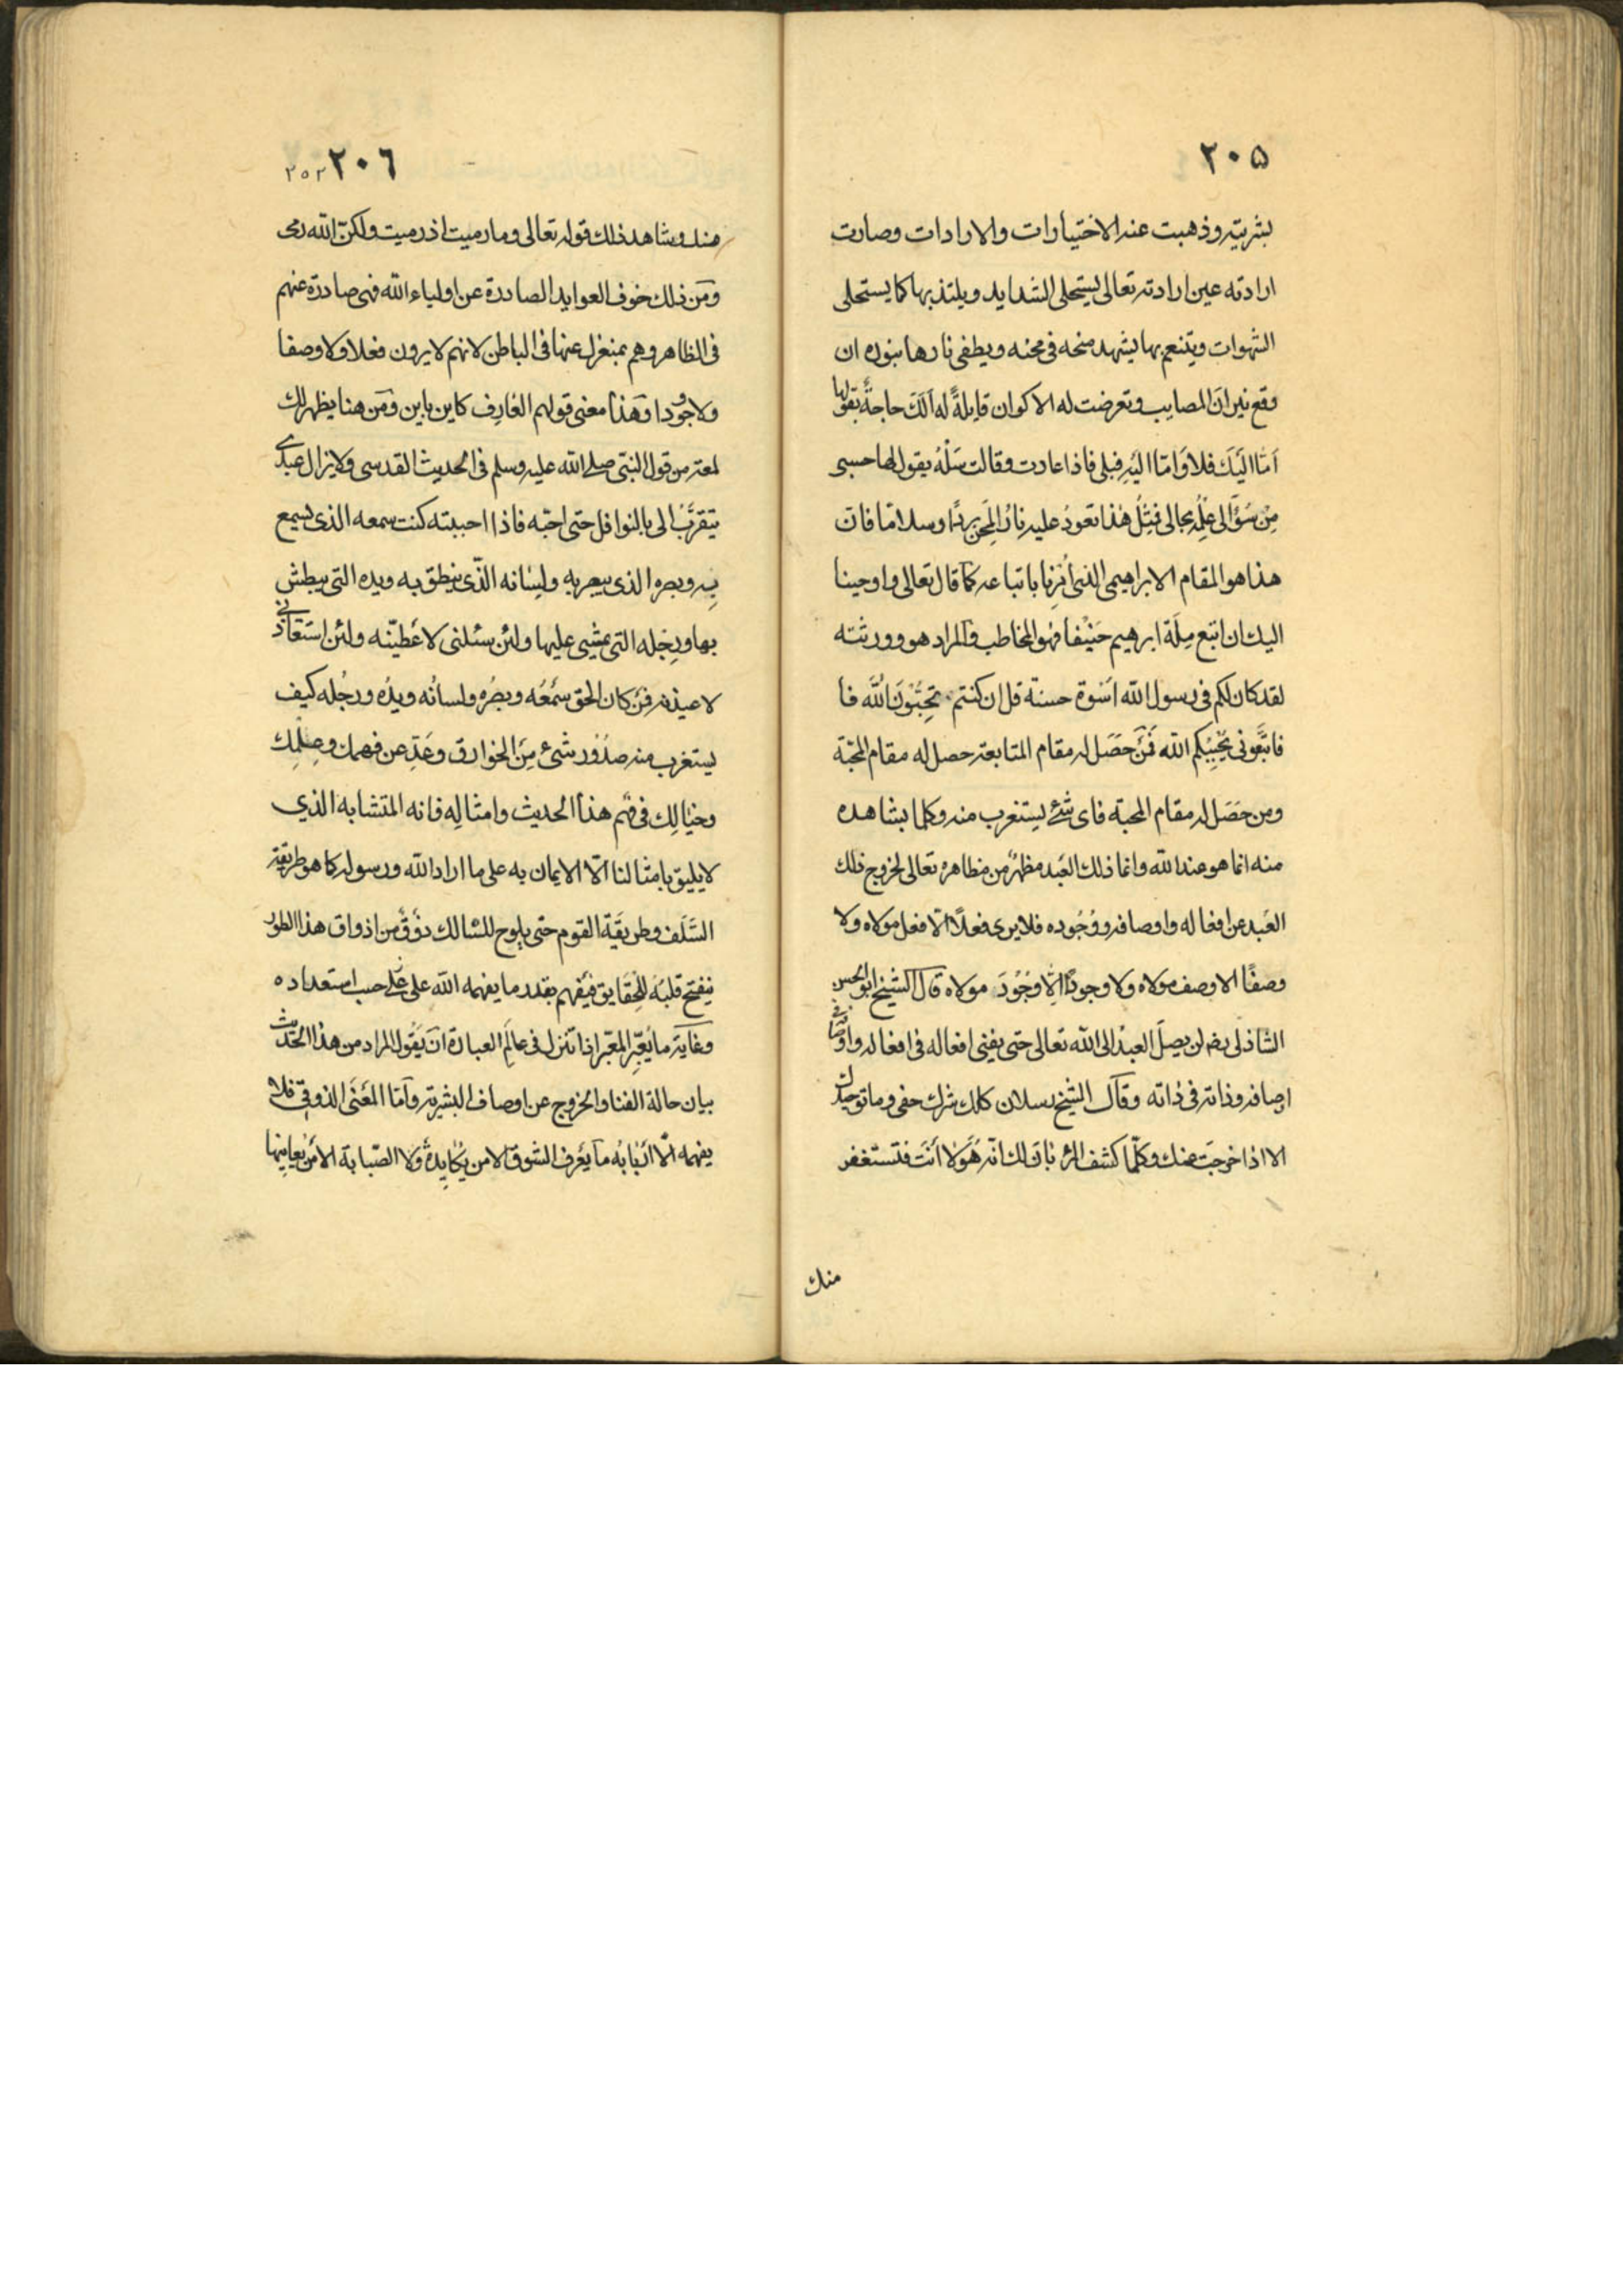 ٢٠٥
بشريته وذهبت عنه الاختيارات والارادات وصارت
ارادته عين ارادته تعالى يستحلى الشدايد ويلتذ بها كما يستحلى
الشهوات ويتنعم بها يشهد منحه فى محنه ويطفى نارها بنوره ان
وقع نيران المصايب وتعرضت له الاكوان قايلةً له اَلَكَ حاجةٌ يقولها
اَمّا اليَكَ فلا وَامّا اليْهِ فبلى فاذا عادت وقالت سَلْهُ يقول لها حسبى
مِنْ سُؤالى عِلْمُه بحالى فمِثْلُ هٰذا تعودُ عليه نارُ المِحَنِ بردًا وسلاما فان
هذا هو المقام الابراهيمى الذى اُمِرنا باتباعه كما قال تعالى واوحينا
اليك ان اتبع مِلّةَ ابرهيم حَنيْفا فهو المخاطب والمراد هو وورثته
لقد كان لكم فى رسول الله اسْوة حسنة قل ان كنتم تُحِبُّوْنَ اللّٰه فا
فاتَّبعونى يُحْبِبْكم الله فَمَنْ حَصَل له مقام المتابعة حصل له مقام المحبّة
ومن حَصَل له مقام المحبة فاى شئ يستغرب منه وكلما يشاهد
منه انما هو عند الله وانما ذلك العَبد مظهرٌ من مظاهره تعالى لخروج ذلك
العَبد عن افعاله واوصافه ووُجُوده فلا يرى فعلًا الّا فعل مولاه ولا
وصفًا الا وصف مولاه ولا وجودًا اِلّا وُجُوْدَ مولاه قال الشيخ ابو الحسن
الشاذلى رضـ لن يصِلَ العبدُ الى الله تعالى حتى يفنى افعاله فى افعاله واوصافه فى
اوصافه وذاته فى ذاته وقال الشيخ رسلان كلك شرك خفى وما توحيدك
الا اذا خرجتَ عنك وكلّما كشف لك بَانَ لك انّه هُوَ لا اَنْتَ فتستغفر
منك
٢٠٦ ٢٥٢
منك وشاهد ذلك قوله تعالى وما رميت اذ رميت ولكنّ الله رمى
ومن ذلك خوف العوايد الصادرة عن اولياء الله فهى صادرة عنهم
فى الظاهر وهم بمنغزل عنها فى الباطن لانهم لا يرون فعلا ولا وصفا
ولا وجودا وهٰذا معنى قولهم العٰارِف كاين باين ومن هنا يظهر لك
لمعة من قول النبيّ صلے الله عليه وسلم فى الحديث القدسى ولا يزال عبدى
يتقرّبُ الى بالنوافل حتى احبّه فاذا احببته كنت سمعه الذى يسمع
بِه وبصره الذى يبصر به ولِسٰانه الّذى ينطق به ويده التى يبطش
بها ورِجله التى يمشى عليها ولئن سئلنى لاعطيّنه ولئن استعاذنى
لاعيذنه فمَن كان الحق سَمْعُه وبصرُه ولسانُه ويدُه ورجُله كيف
يستغرب منه صدُوْر شَىْء مِنَ الخوارق وعَدِّ عن فهمك وعِلمِك
وخيٰالِك فى فهْم هذا الحديث وامثالِه فانه المتشابه الذي
لا يليق بامثالنا الّا الايمان به على ما اراد الله ورسوله كما هو طريقة
السَّلَف وطريقَة القوم حتى يلوح للسٰالك ذَوْقٌ من اذواق هذا الطور
فيَفتح قلبَه للحقايق فيَفْهم بقدر ما يفهمه الله على علے حسب استعداده
وغٰاية ما يُعَبِّر المعبّر اذا تنزل فى عالَمِ العبارة ان يَقُول المراد من هذا الحديث
بيان حالة الفنا والخروج عن اوصاف البشرية وامّا المَعْنَى الذوقى فلا
يفهمه الّا اربَابُه ما يَعْرف الشوق الا من يُكٰابِدهُ ولا الصّبابة الا مَنْ يعانيها